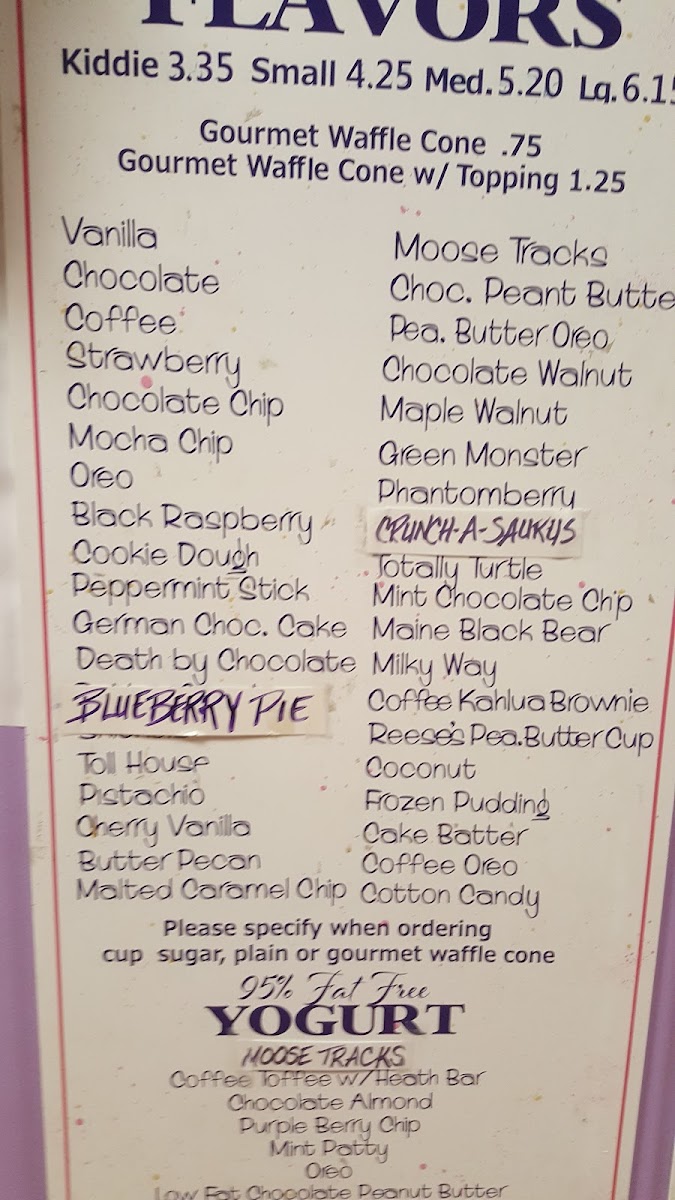 FLAVORS
Kiddie 3.35 Small 4.25 Med. 5.20 Lg. 6.15
Gourmet Waffle Cone .75
Gourmet Waffle Cone w/ Topping 1.25
Vanilla
Chocolate
Coffee
Strawberry
Chocolate Chip
Mocha Chip
Oreo
Black Raspberry
Cookie Dough
Peppermint Stick
German Choc. Cake
Death by Chocolate
BLUEBERRY PIE
Toll House
Pistachio
Cherry Vanilla
Butter Pecan
Malted Caramel Chip
Moose Tracks
Choc. Peant Butte
Pea. Butter Oreo
Chocolate Walnut
Maple Walnut
Green Monster
Phantomberry
CRUNCH-A-SAURUS
Totally Turtle
Mint Chocolate Chip
Maine Black Bear
Milky Way
Coffee Kahlua Brownie
Reese's Pea. Butter Cup
Coconut
Frozen Pudding
Cake Batter
Coffee Oreo
Cotton Candy
Please specify when ordering
cup sugar, plain or gourmet waffle cone
95% Fat Free
YOGURT
MOOSE TRACKS
Coffee Toffee w/ Heath Bar
Chocolate Almond
Purple Berry Chip
Mint Patty
Oreo
Low Fat Chocolate Peanut Butter